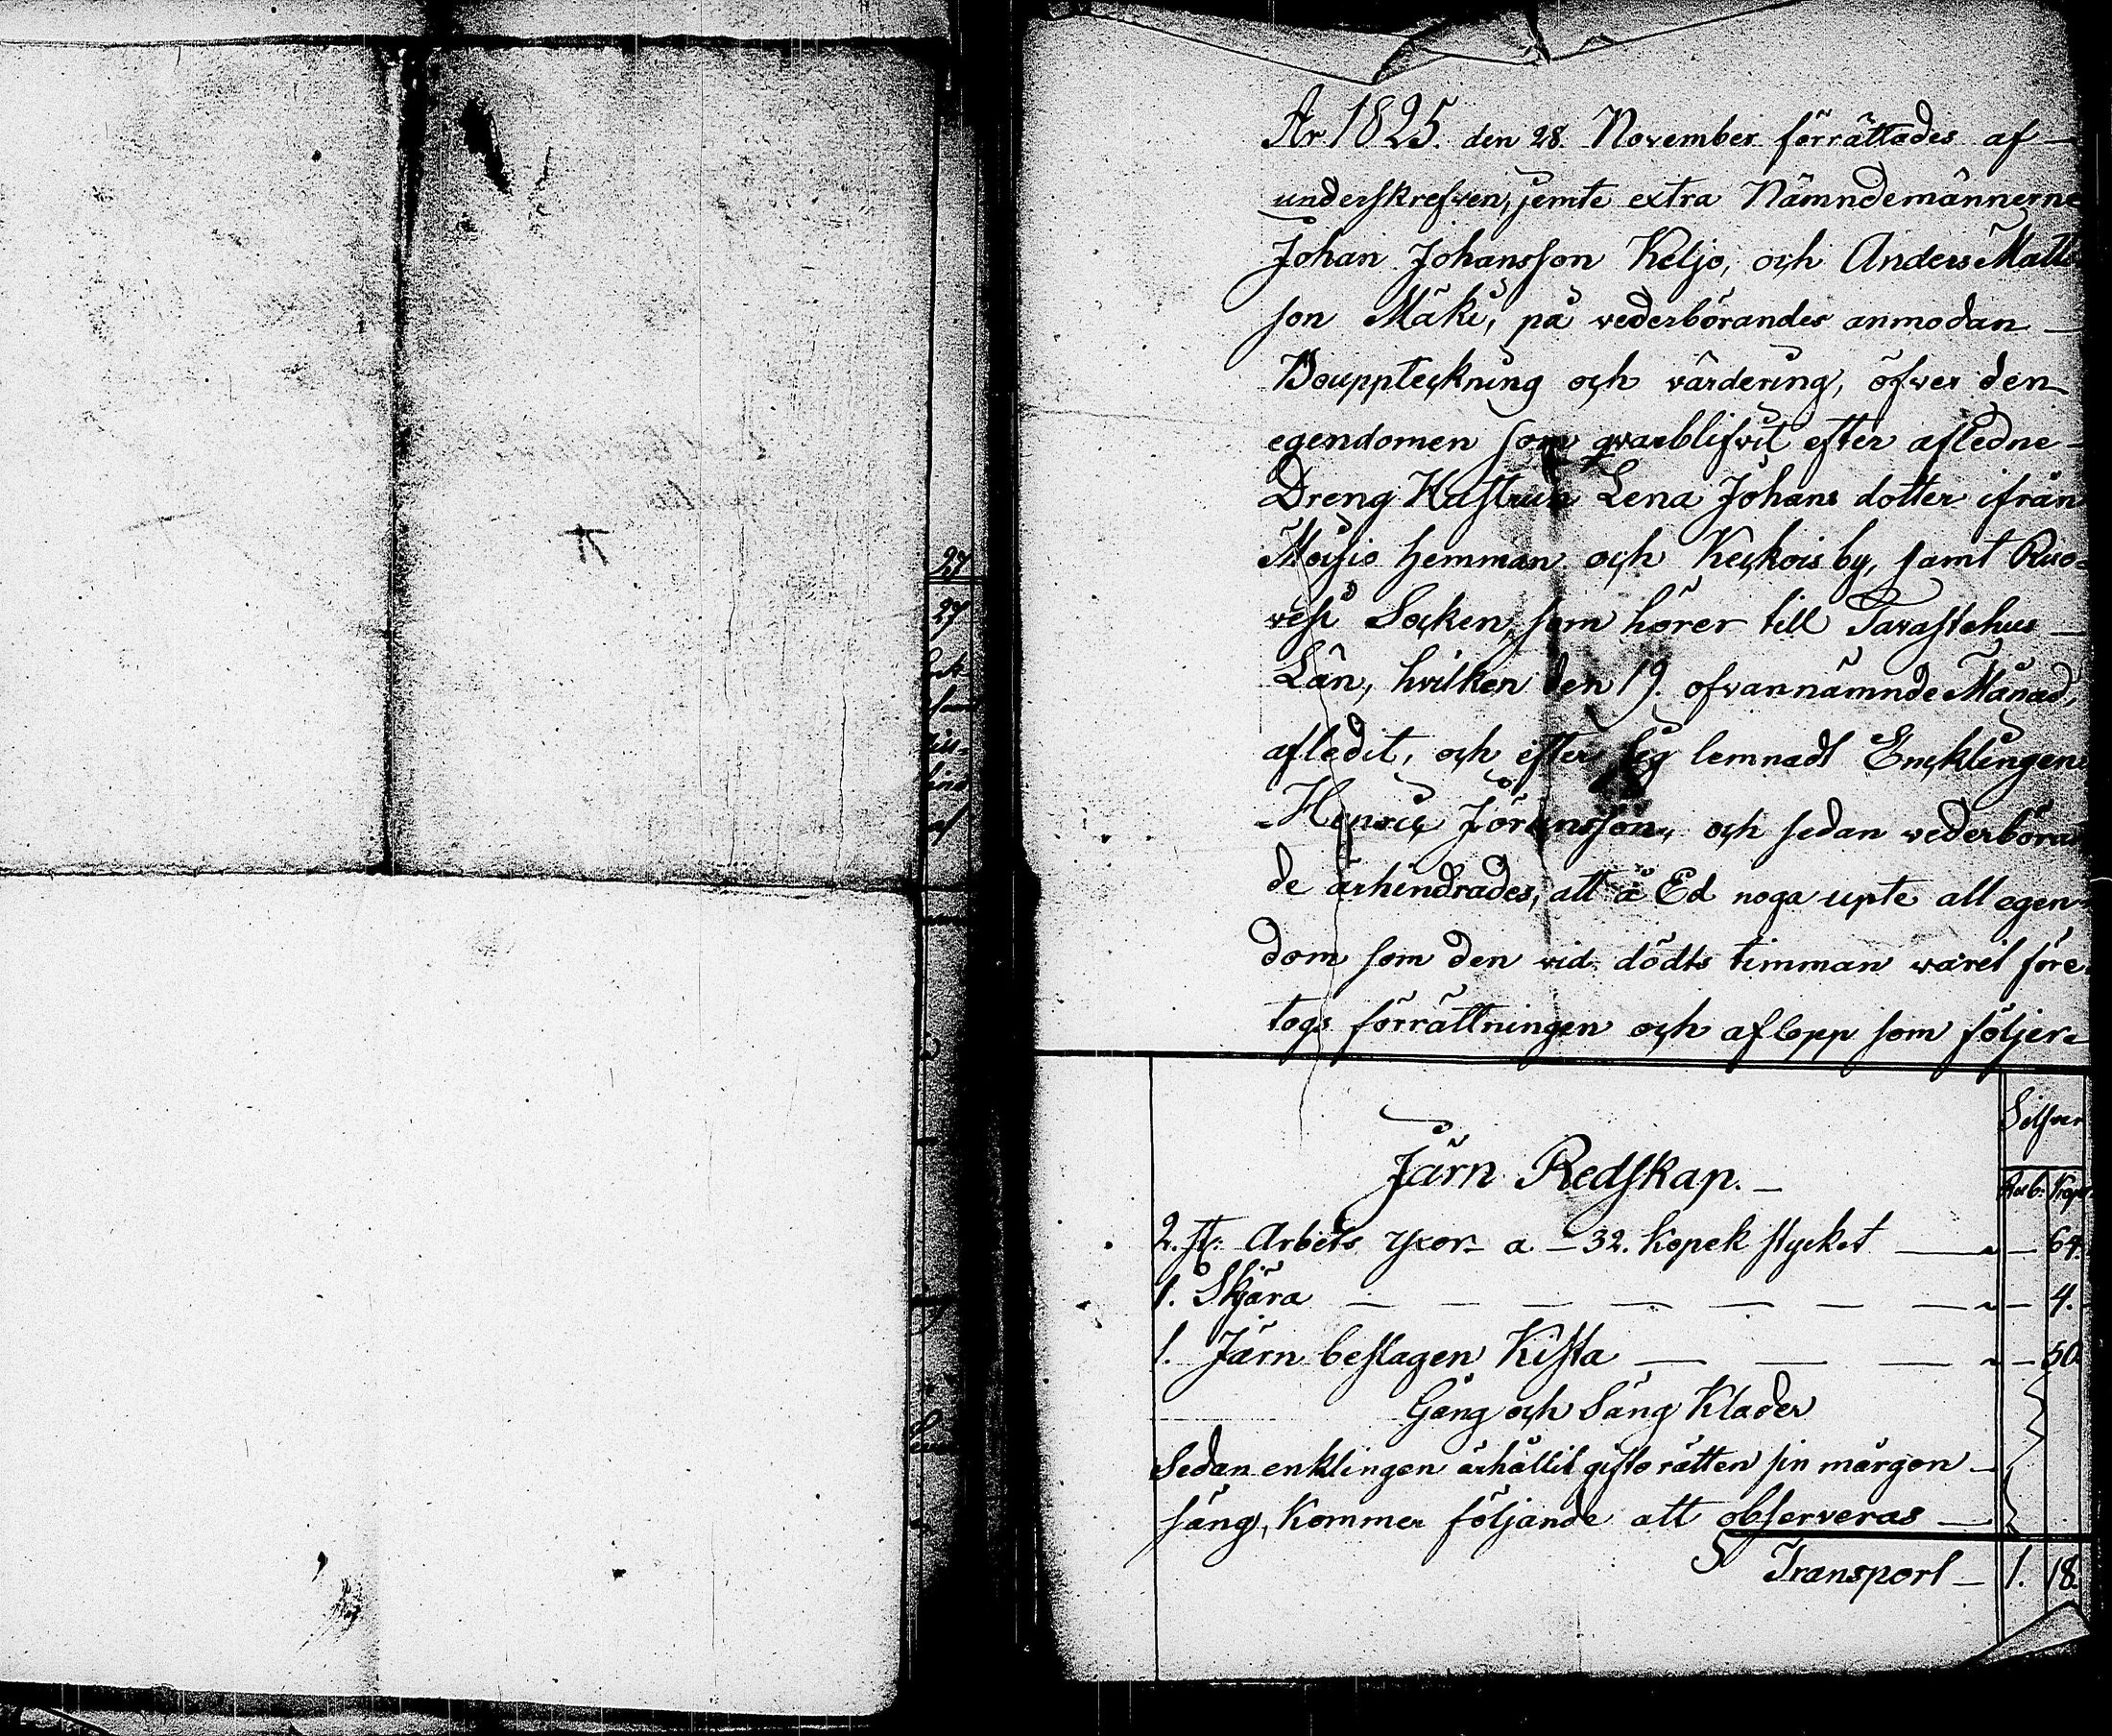 År 1825. den 28. November förrättades af
underskrefven, jemte extra Nämndemännerne
Johan Johansson Keljo, och Anders Matts
son Mäki, på vederbörandes anmodan
Bouppteckning och värdering, öfver den
egendomen som qvarblifvit efter afledne
Dreng Hustrun Lena Johans dotter ifrån
Moisio hemman och Keckois by, samt Ruo-
vesi Socken, som hörer till Tavastehus
Län, hvilken den 19. ofvannämnde Månad,
afledit, och efter sig lemnadt Encklingen
Henric Göransson, och sedan vederböran
de ärhindrades, att å Ed noga upte all egen-
dom som den vid dödts timman varit före-
togs förrättningen och aflopp som följer
Silfver
Rub: Kop:
Järn Redskap.
2. st: Arbets yxor a 32. Kopek stycket — 64.
1. Skjära — 4.
1. Järn beslagen Kista — 50.
Gång och Säng Kläder
Sedan enklingen ärhållit gifto rätten sin märgon
säng, Kommer följande att observeras
Transport 1. 18.
27
27